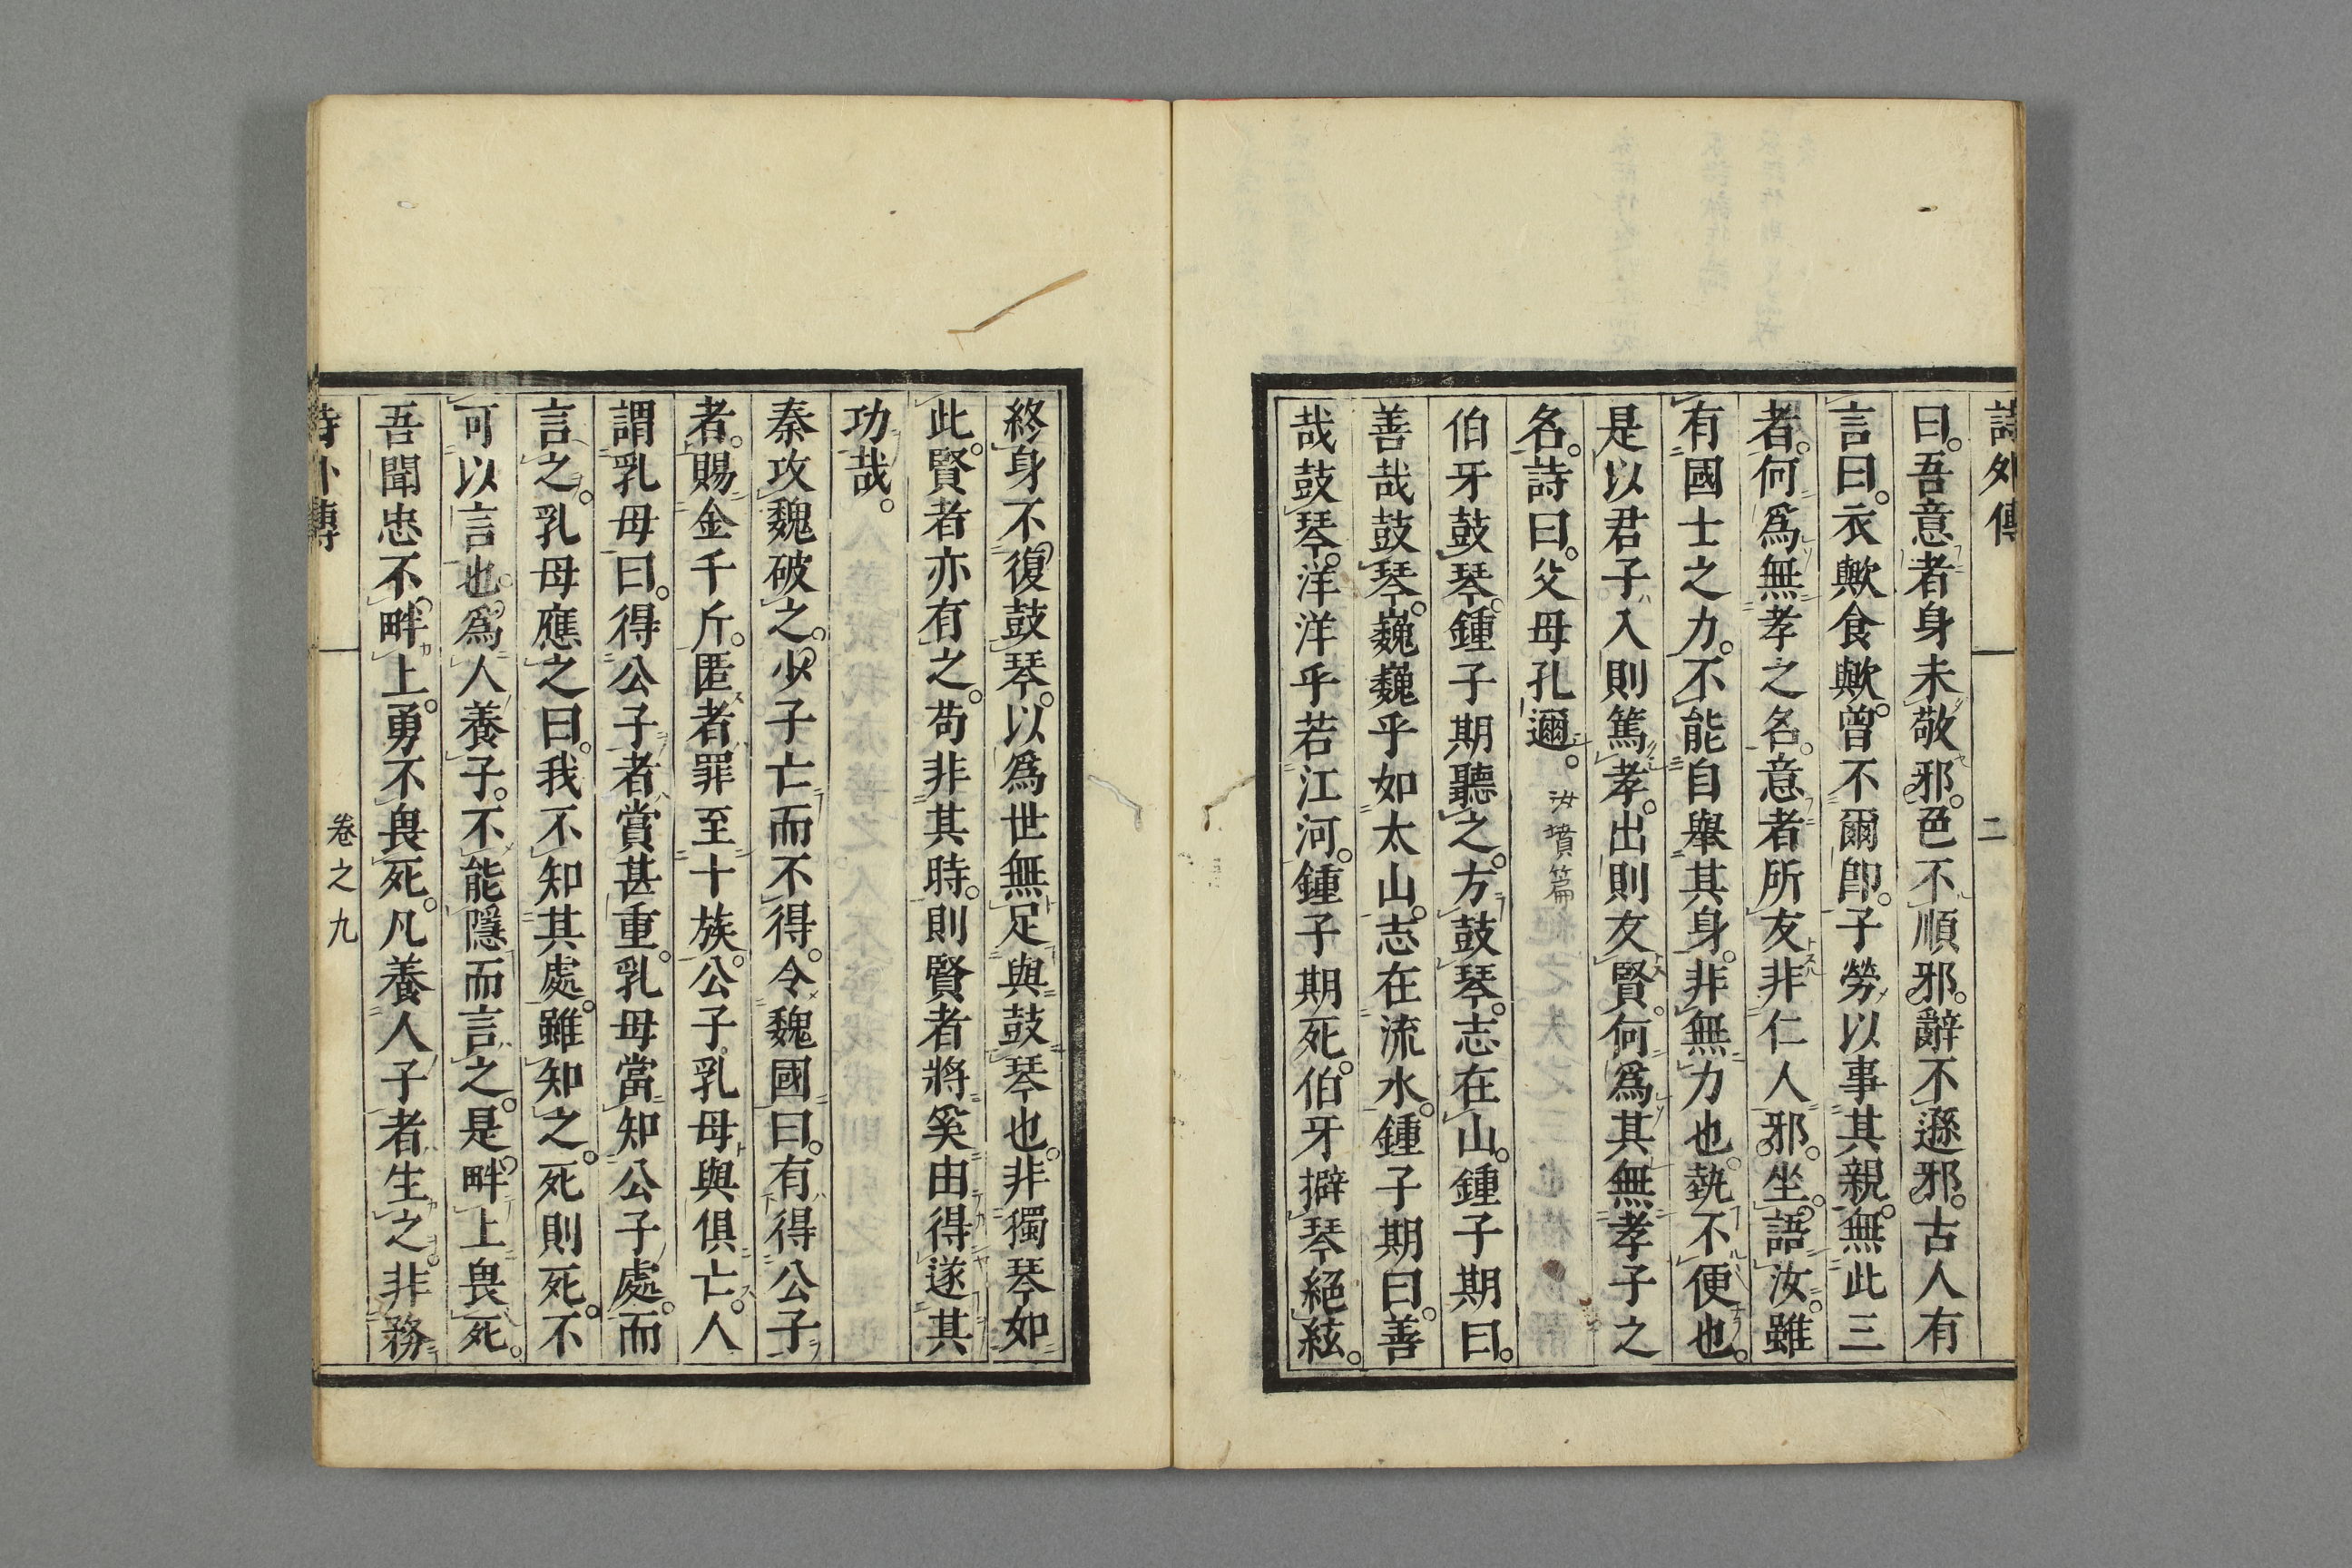 詩外傳 二
曰。吾意者身未敬邪。色不順邪。辭不遜邪。古人有
言曰。衣歟食歟。曾不爾卽。子勞以事其親。無此三
者。何爲無孝之名。意者所友非仁人邪。坐。語汝。雖
有國士之力。不能自舉其身。非無力也。勢不便也。
是以君子入則篤孝。出則友賢。何爲其無孝子之
名。詩曰。父母孔邇。汝墳篇
伯牙鼓琴。鍾子期聽之。方鼓琴。志在山。鍾子期曰。
善哉鼓琴。巍巍乎如太山。志在流水。鍾子期曰。善
哉鼓琴。洋洋乎若江河。鍾子期死。伯牙擗琴絕絃。
終身不復鼓琴。以爲世無足與鼓琴也。非獨琴如
此。賢者亦有之。苟非其時。則賢者將奚由得遂其
功哉。
秦攻魏破之。少子亡而不得。令魏國曰。有得公子
者。賜金千斤。匿者罪至十族。公子乳母與俱亡。人
謂乳母曰。得公子者賞甚重。乳母當知公子處。而
言之。乳母應之曰。我不知其處。雖知之。死則死。不
可以言也。爲人養子。不能隱而言之。是畔上畏死。
吾聞忠不畔上。勇不畏死。凡養人子者生之。非務
詩外傳 卷之九